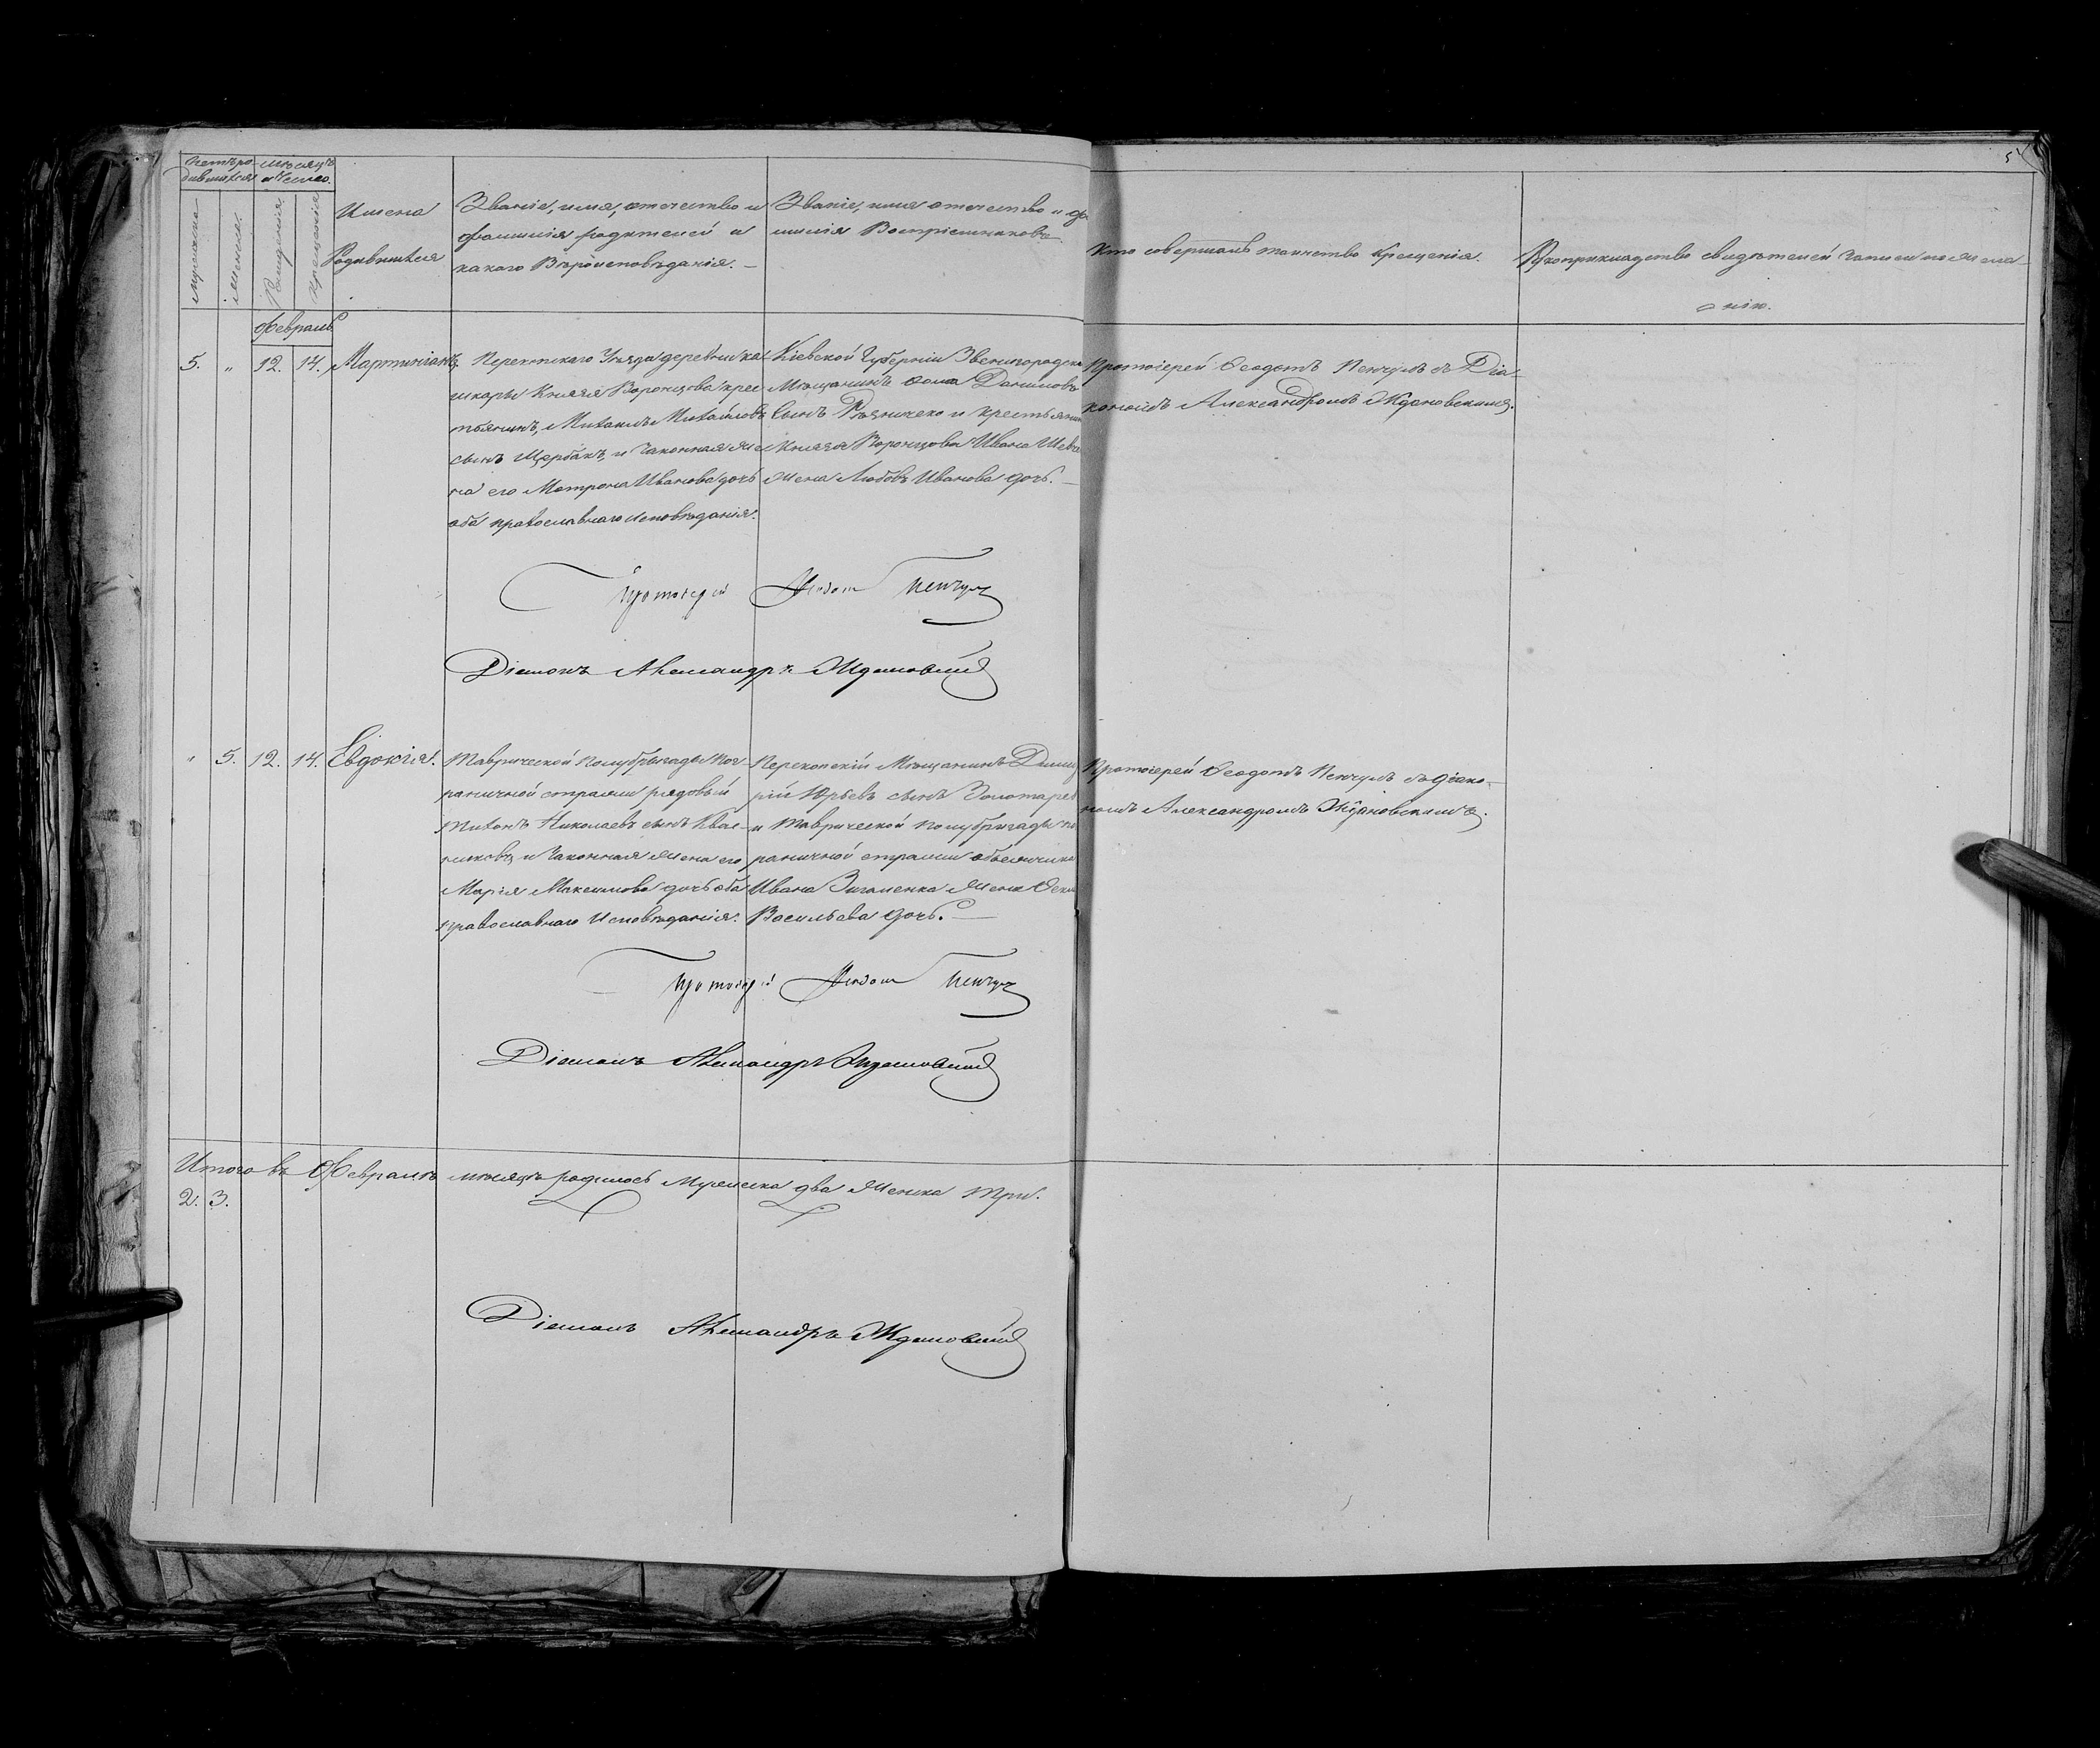 Счетъ ро- Мѣсяцъ
дившихся и Число.
Мужеска
Женска
Рожденія
Крещенія
Имена
Родившихся
Званіе, имя, отечество и
фамилія родителей и
какого Вѣроисповѣданія. —
Званіе, имя отечество и фа
милія Воспріемниковъ
Кто совершалъ таинство Крещенія.
Рукоприкладство свидѣтелей записи по жела-
нію.
Февраль
5. „ 12. 14. Мартиніанъ
Перекопскаго Уѣзда деревни Ка
шкары Князя Воронцова крес
тьянинъ, Михаилъ Михайловъ
сынъ Щербакъ, и Законная же
на его Матрона Иванова дочь
оба православнаго исповѣданія.
Кіевской Губерніи Звенигородски
Мѣщанинъ Фома Даниловъ
Сынъ и крестьянин
Князя Воронцова Ивана Шевч
жена Любовь Иванова дочь. —
Протоіерей Феодотъ Пенчулъ съ Діа-
кономъ Александромъ Ждановскимъ.
Протоіерей Феодот Пенчул
Діаконъ Александръ Ждановскій
„ 5. 12. 14. Евдокія.
Таврической Полубригады Пог-
раничной стражи рядовый
Тихонъ Николаевъ сынъ Квас-
никовъ, и Законная жена его
Марія Максимова дочь оба
православнаго Исповѣданія.
Перекопскій Мѣщанинъ Дими
трій Юрьевъ сынъ Золотарев
и Таврической Полубригады по
раничной стражи объѣзчика
Ивана Зигаленка жена Фекл
Васильева дочь. —
Протоіерей Феодотъ Пенчулъ съ Діако-
номъ Александромъ Ждановскимъ.
Протоіерей Феодот Пенчул
Діаконъ Александръ Ждановскій
Итого въ Февралѣ мѣсяцѣ родилось Мужеска два Женска три.
2. 3.
Діаконъ Александръ Ждановскій